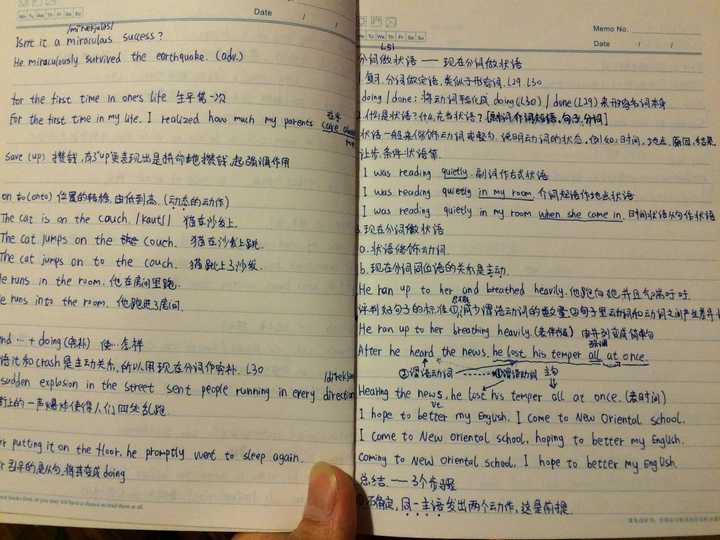 Mo Tu We Th Fr Sa Su
Date / /
/mɪˈrækjələs/
Isn't it a miraculous success?
He miraculously survived the earthquake. (adv.)
for the first time in one's life 生平第一次
For the first time in my life. I realized how much my parents
save (up) 攒钱,
起强调作用
on to (onto) 位置的转移, 由低到高. (动态的动作)
The cat is on the couch. /kautʃ/ 猫在沙发上.
The cat jumps on the couch. 猫在沙发上跳.
The cat jumps on to the couch. 猫跳上了沙发.
He runs in the room. 他在房间里跑.
He runs into the room. 他跑进了房间.
+ doing (宾补) 使…怎样
crash 是主动关系, 所以用现在分词作宾补. L30
sudden explosion in the street sent people running in every direction
街上的一声爆炸使得人们四处乱跑.
putting it on the floor, he promptly went to sleep again.
doing
Memo No.
Mo Tu We Th Fr Sa Su
Date / /
L31
分词做状语 —— 现在分词做状语
1. 复习. 分词做定语, 类似于形容词. L29. L30
doing / done: 将动词转化成 doing (L30) / done (L29) 来形容名词本身
2. 什么是状语? 什么在当状语? [副词 介词短语, 句子, 分词]
状语一般来修饰动词或整句, 说明动词的状态, 例如: 时间, 地点, 原因, 结果,
让步, 条件状语等.
I was reading quietly. 副词作方式状语
I was reading quietly in my room. 介词短语作地点状语
I was reading quietly in my room when she came in. 时间状语从句作状语
3. 现在分词做状语
a. 状语修饰动词.
b. 现在分词同位语的关系是主动.
He ran up to her and breathed heavily. 他跑向她并且气喘吁吁.
评判好句子的标准 ①减少谓语动词的数量 ②句子里动词和动词之间产生
He ran up to her breathing heavily. (表伴随) 由并列变成简单句
After he heard the news, he lost his temper all at once.
强调
②谓语动词 ①谓语动词 主句
Hearing the news, he lost his temper all at once. (表时间)
vt.
I hope to better my English. I come to New Oriental school.
I come to New Oriental school, hoping to better my English.
Coming to New Oriental school, I hope to better my English.
总结 —— 3个步骤
确定, 同一主语发出两个动作, 这是前提.